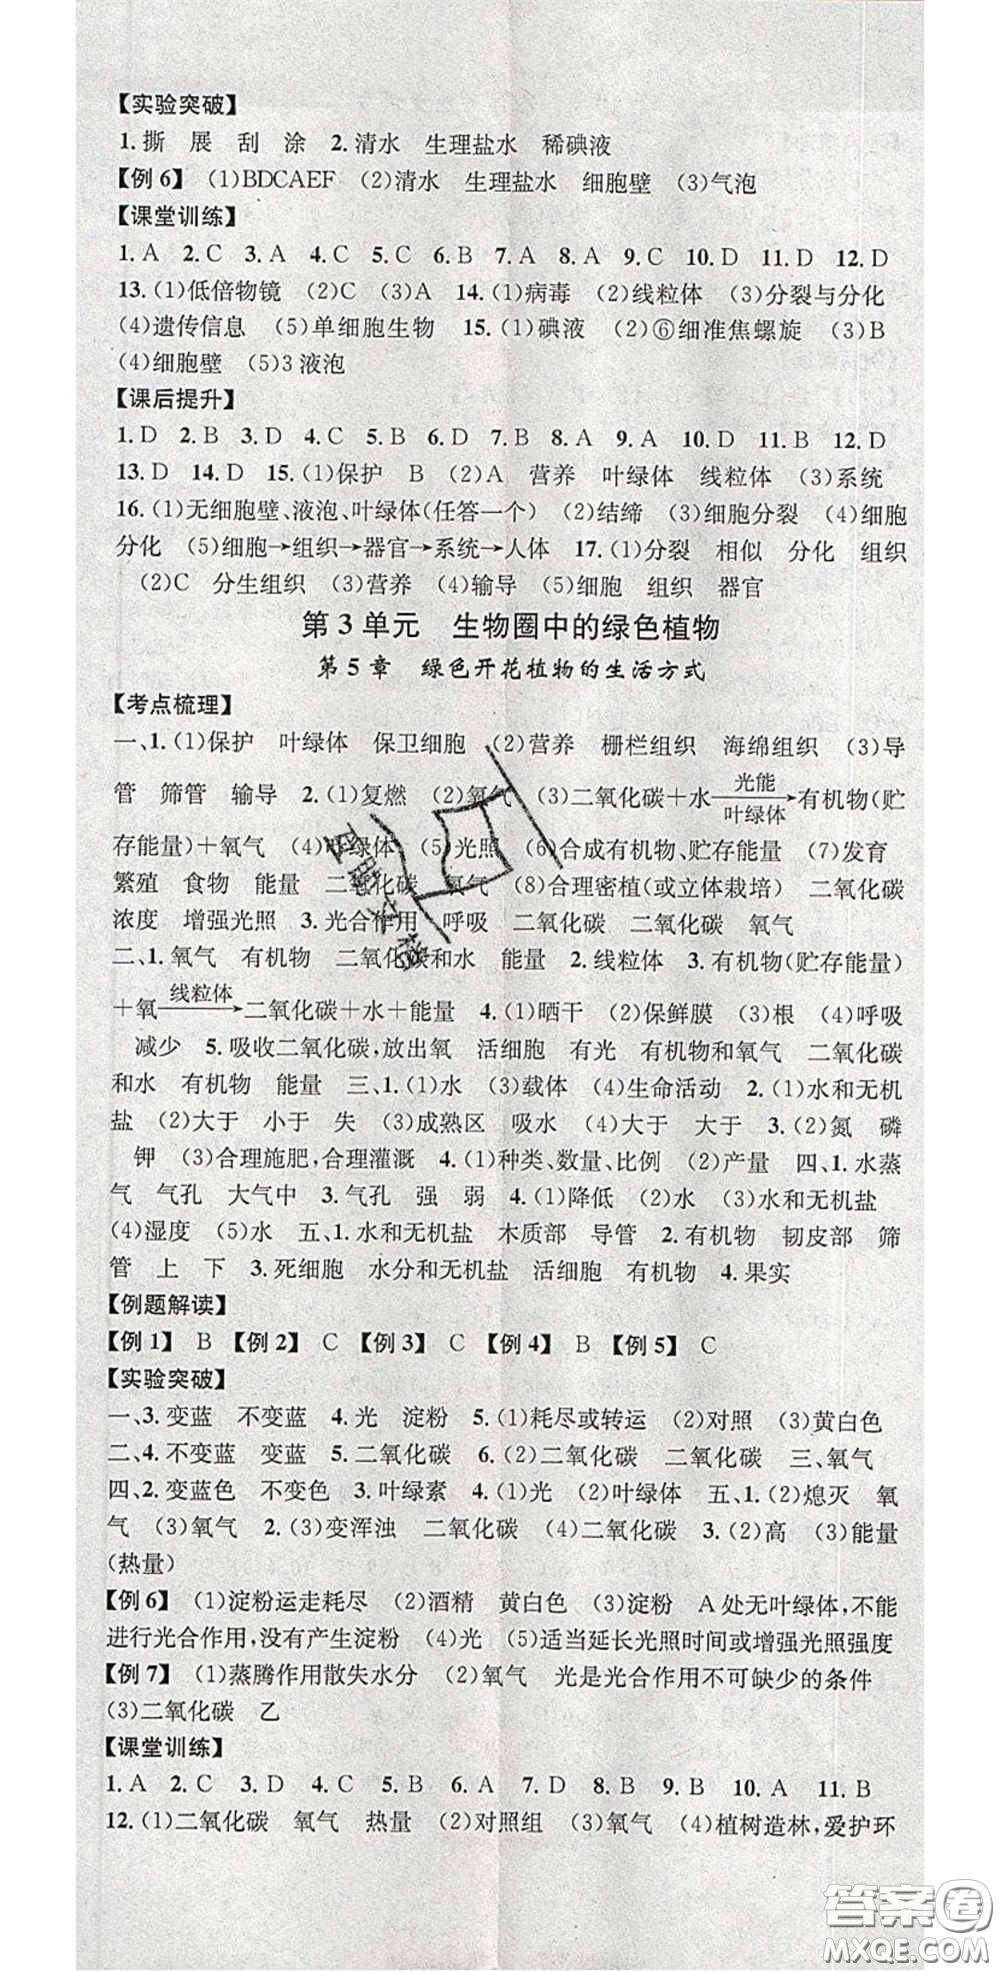 【实验突破】
1.撕 展 刮 涂 2.清水 生理盐水 稀碘液
【例6】 (1)BDCAEF (2)清水 生理盐水 细胞壁 (3)气泡
【课堂训练】
1.A 2.C 3.A 4.C 5.C 6.B 7.A 8.A 9.C 10.D 11.D 12.D
13.(1)低倍物镜 (2)C (3)A 14.(1)病毒 (2)线粒体 (3)分裂与分化
(4)遗传信息 (5)单细胞生物 15.(1)碘液 (2)⑥细准焦螺旋 (3)B
(4)细胞壁 (5)3液泡
【课后提升】
1.D 2.B 3.D 4.C 5.B 6.D 7.B 8.A 9.A 10.D 11.B 12.D
13.D 14.D 15.(1)保护 B (2)A 营养 叶绿体 线粒体 (3)系统
16.(1)无细胞壁、液泡、叶绿体(任答一个) (2)结缔 (3)细胞分裂 (4)细胞
分化 (5)细胞→组织→器官→系统→人体 17.(1)分裂 相似 分化 组织
(2)C 分生组织 (3)营养 (4)输导 (5)细胞 组织 器官
第3单元 生物圈中的绿色植物
第5章 绿色开花植物的生活方式
【考点梳理】
一、1.(1)保护 叶绿体 保卫细胞 (2)营养 栅栏组织 海绵组织 (3)导
管 筛管 输导 2.(1)复燃 (2)氧气 (3)二氧化碳＋水 光能 叶绿体 →有机物(贮
存能量)＋氧气 (4)叶绿体 (5)光照 (6)合成有机物、贮存能量 (7)发育
繁殖 食物 能量 二氧化碳 氧气 (8)合理密植(或立体栽培) 二氧化碳
浓度 增强光照 3.光合作用 呼吸 二氧化碳 二氧化碳 氧气
二、1.氧气 有机物 二氧化碳和水 能量 2.线粒体 3.有机物(贮存能量)
＋氧 线粒体 →二氧化碳＋水＋能量 4.(1)晒干 (2)保鲜膜 (3)根 (4)呼吸
减少 5.吸收二氧化碳,放出氧 活细胞 有光 有机物和氧气 二氧化碳
和水 有机物 能量 三、1.(1)水 (3)载体 (4)生命活动 2.(1)水和无机
盐 (2)大于 小于 失 (3)成熟区 吸水 (4)大于 大于 3.(2)氮 磷
钾 (3)合理施肥,合理灌溉 4.(1)种类、数量、比例 (2)产量 四、1.水蒸
气 气孔 大气中 3.气孔 强 弱 4.(1)降低 (2)水 (3)水和无机盐
(4)湿度 (5)水 五、1.水和无机盐 木质部 导管 2.有机物 韧皮部 筛
管 上 下 3.死细胞 水分和无机盐 活细胞 有机物 4.果实
【例题解读】
【例1】 B 【例2】 C 【例3】 C 【例4】 B 【例5】 C
【实验突破】
一、3.变蓝 不变蓝 4.光 淀粉 5.(1)耗尽或转运 (2)对照 (3)黄白色
二、4.不变蓝 变蓝 5.二氧化碳 6.(2)二氧化碳 二氧化碳 三、氧气
四、2.变蓝色 不变色 3.叶绿素 4.(1)光 (2)叶绿体 五、1.(2)熄灭 氧
气 (3)氧气 2.(3)变浑浊 二氧化碳 (4)二氧化碳 3.(2)高 (3)能量
(热量)
【例6】 (1)淀粉运走耗尽 (2)酒精 黄白色 (3)淀粉 A处无叶绿体,不能
进行光合作用,没有产生淀粉 (4)光 (5)适当延长光照时间或增强光照强度
【例7】 (1)蒸腾作用散失水分 (2)氧气 光是光合作用不可缺少的条件
(3)二氧化碳 乙
【课堂训练】
1.A 2.C 3.D 4.C 5.B 6.A 7.D 8.B 9.B 10.A 11.B
12.(1)二氧化碳 氧气 热量 (2)对照组 (3)氧气 (4)植树造林,爱护环
答案圈
MXQE.COM